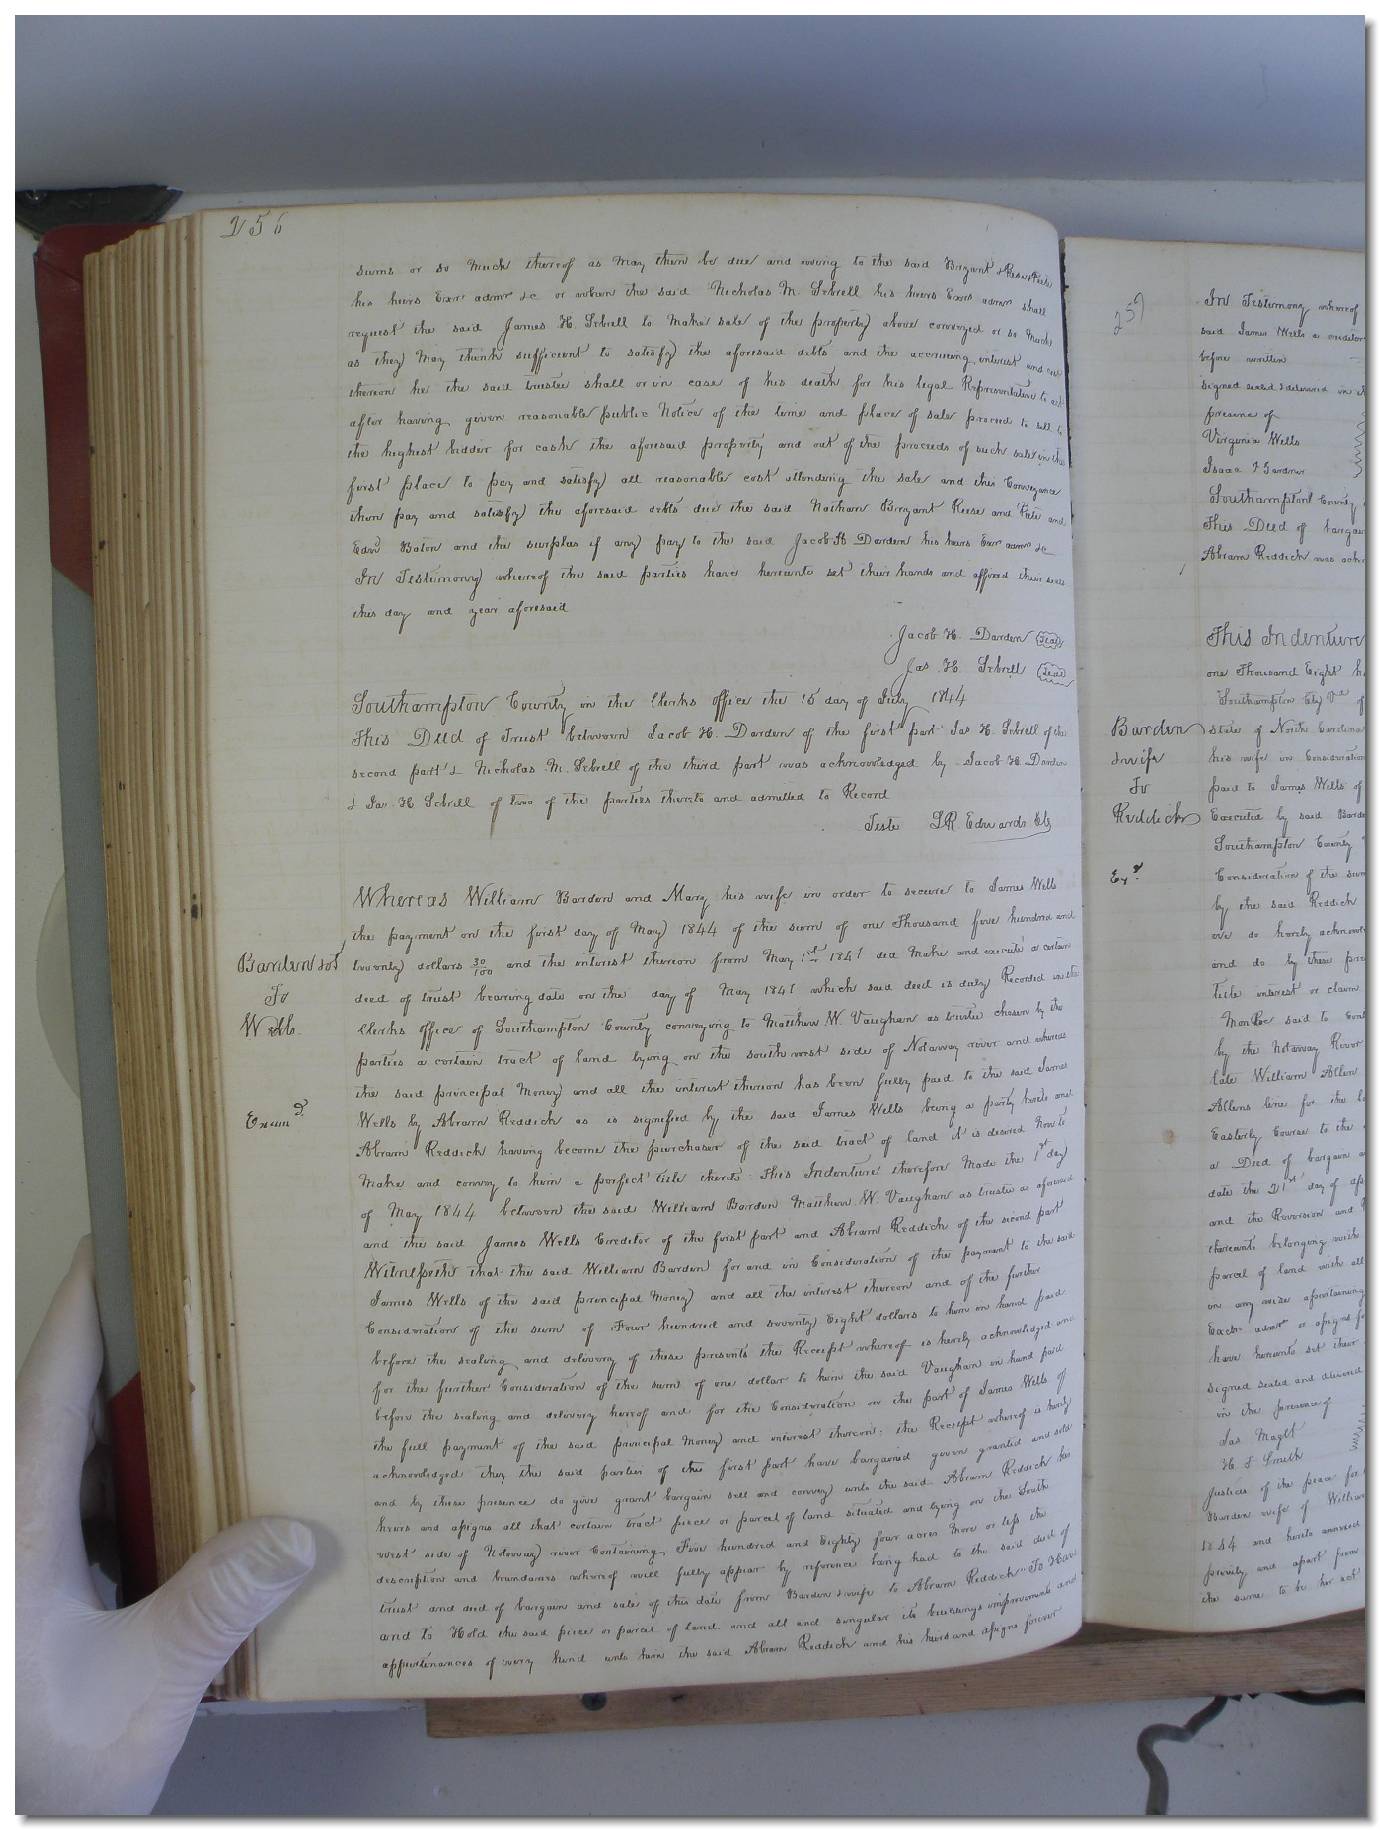 256
sums or so much thereof as may then be due and owing to the said Bryant & Reese & Pate
his heirs Exrs admrs &c or when the said Nicholas M. Sebrell his heirs Exrs admrs shall
request the said James H. Sebrell to make sale of the property above conveyed or so much
as they may think sufficient to satisfy the aforesaid debts and the accruing interest and cost
thereon he the said trustee shall or in case of his death for his legal Representative to act
after having given reasonable public notice of the time and place of sale proceed to sell to
the highest bidder for cash the aforesaid property and out of the proceeds of such sale in the
first place to pay and satisfy all reasonable cost attending the sale and this Conveyance
then pay and satisfy the aforesaid debts due the said Nathan Bryant Reese and Pate and
Edwd Baton and the surplus if any pay to the said Jacob H Darden his heirs Exrs admrs &c
In Testimony whereof the said parties have hereunto set their hands and affixed their seals
this day and year aforesaid
Jacob H. Darden Seal
Jas. H. Sebrell Seal
Southampton County in the Clerks office the 15 day of July 1844
This Deed of Trust between Jacob H. Darden of the first part Jas H. Sebrell of the
second part & Nicholas M. Sebrell of the third part was acknowledged by Jacob H Darden
& Jas. H Sebrell of two of the parties thereto and admitted to Record
Teste L.R. Edwards Clk
Barden &ot
To
Wells.
Examd
Whereas William Barden and Mary his wife in order to secure to James Wells
the payment on the first day of May 1844 of the sum of one Thousand five hundred and
twenty dollars 30/100 and the interest thereon from May 1st 1841 did make and execute a certain
deed of trust bearing date on the day of May 1841 which said deed is duly Recorded in the
Clerks office of Southampton County conveying to Matthew W. Vaughan as trustee chosen by the
parties a certain tract of land lying on the south west side of Notaway river and whereas
the said principal money and all the interest thereon has been fully paid to the said James
Wells by Abram Reddick as is signified by the said James Wells being a party hereto and
Abram Reddick having become the purchaser of the said tract of land it is desired now to
make and convey to him a perfect title thereto This Indenture therefore made the 1st day
of May 1844 between the said William Barden Matthew W. Vaughan as trustee as aforesaid
and the said James Wells Creditor of the first part and Abram Reddick of the second part
Witnesseth that the said William Barden for and in Consideration of the payment to the said
James Wells of the said principal money and all the interest thereon and of the further
Consideration of the sum of Four hundred and seventy Eight dollars to him in hand paid
before the sealing and delivery of these presents the Receipt whereof is hereby acknowledged and
for the further Consideration of the sum of one dollar to him the said Vaughan in hand paid
before the sealing and delivery hereof and for the Consideration on the part of James Wells of
the full payment of the said principal money and interest thereon: the Receipt whereof is hereby
acknowledged they the said parties of the first part have bargained given granted and sold
and by these presence do give grant bargain sell and convey unto the said Abram Reddick his
heirs and assigns all that certain tract piece or parcel of land situated and lying on the South
west side of Notaway river Containing Five hundred and Eighty four acres more or less the
description and boundaries whereof will fully appear by reference being had to the said deed of
trust and deed of bargain and sale of this date from Barden & wife to Abram Reddick To Have
and to Hold the said piece or parcel of land and all and singular its buildings improvements and
appurtenances of every kind unto him the said Abram Reddick and his heirs and assigns forever
257
In Testimony whereof
said James Wells a creditor
before written
signed sealed & delivered in
presence of
Virginia Wells
Isaac J Gardner
Southampton County
This Deed of bargain
Abram Reddick was ackn
Barden
&wife
To
Reddick
Exd
This Indenture
one Thousand Eight h
Southampton Cty Va of
state of North Carolina
his wife in Consideration
paid to James Wells of
Executed by said Barden
Southampton County
Consideration of the sum
by the said Reddick
we do hereby acknow
and do by these pre
title interest or claim
Monroe said to cont
by the Notaway River
late William Allen
Allens line for the
Easterly Course to the
a Deed of bargain a
date the 21st day of ap
and the Reversion and
thereunto belonging with
parcel of land with all
in any wise apertaining
Exctr admr or assigns fo
have hereunto set their
Signed sealed and delivered
in the presence of
Jas Magtt
H J Smith
Justices of the peace for
Barden wife of William
1844 and hereto annexed
privily and apart from
the same to be her act